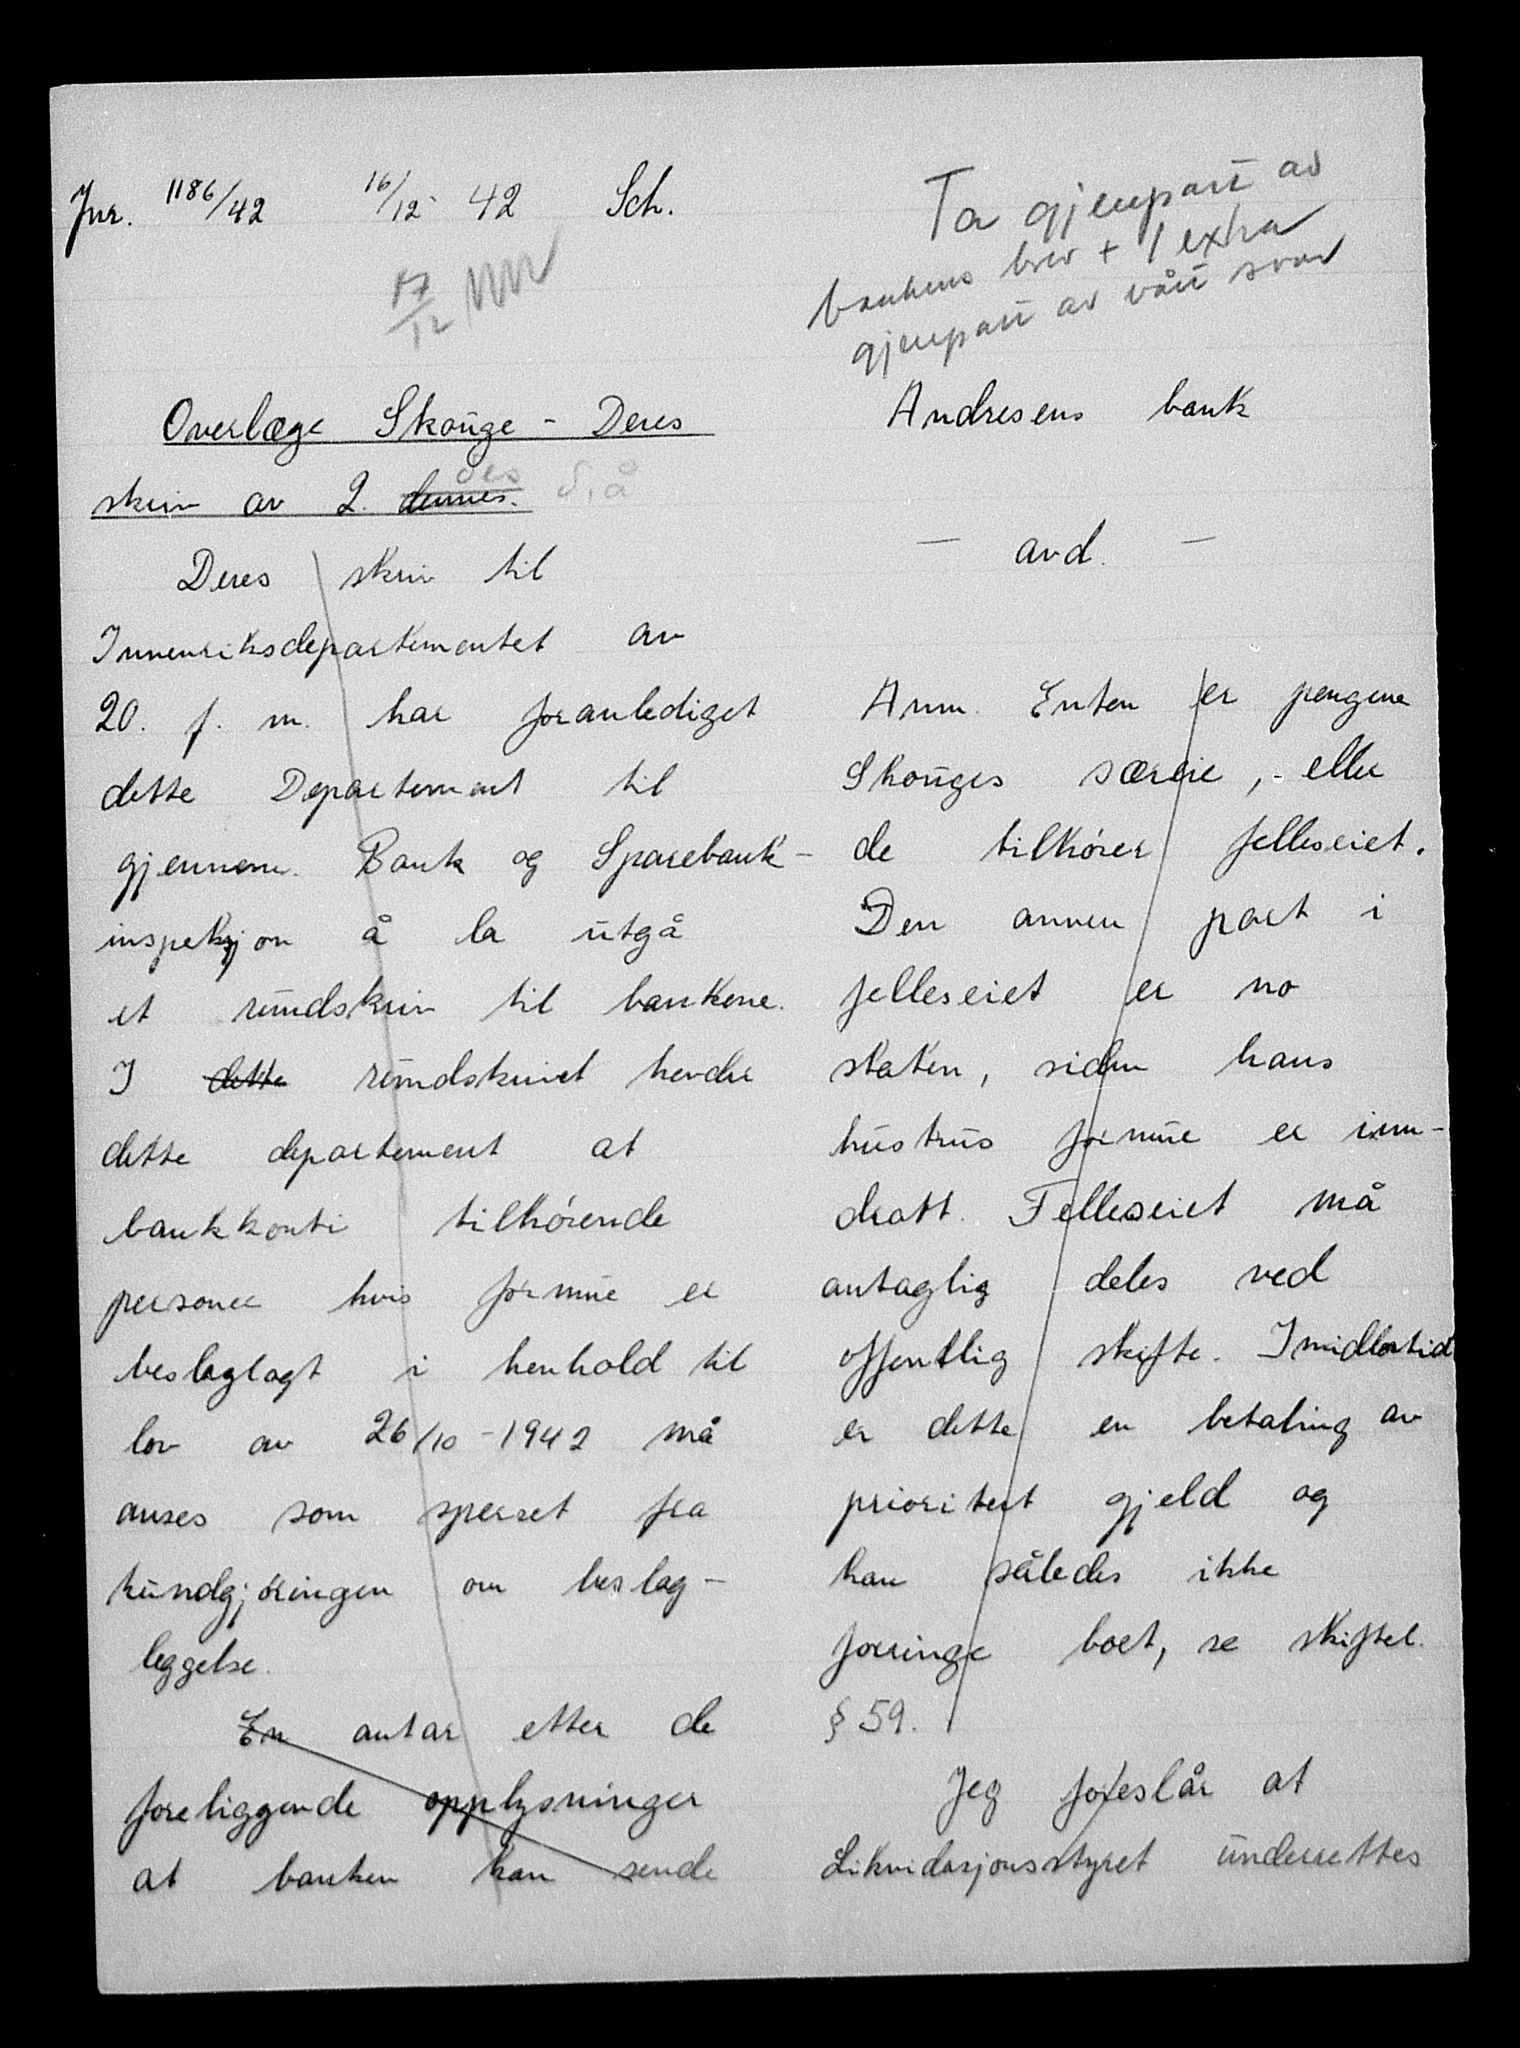 Jnr. 1186/42 16/12 42 Sch.
17/12
Overlæge Skouge - Deres
skriv av 2. dennes. des s.å
Deres skriv til
Innenriksdepartementet av
20. f. m. har foranlediget
dette Departement til
gjennem Bank og Sparebank-
inspeksjon å la utgå
et rundskriv til bankene.
I dette rundskrivet hevder
dette departement at
bankkonti tilhørende
personer hvis formue er
beslaglagt i henhold til
lov av 26/10-1942 må
anses som sperret fra
kundgjøringen om beslag-
leggelse.
En antar etter de
foreliggende opplysninger
at banken kan sende
Ta gjenpart av
bankens brev + 1 extra
gjenpart av vårt svar
Andresens bank
— avd. —
Anm. Enten er pengene
Skouges særeie, - eller
de tilhører felleseiet.
Den annen part i
felleseiet er no
staten, siden hans
hustrus formue er inn-
dratt. Felleseiet må
antaglig deles ved
offentlig skifte. Imidlertid
er dette en betaling av
prioritert gjeld og
kan således ikke
forringe boet, se skiftel.
§ 59.
Jeg foreslår at
Likvidasjonsstyret underrettes